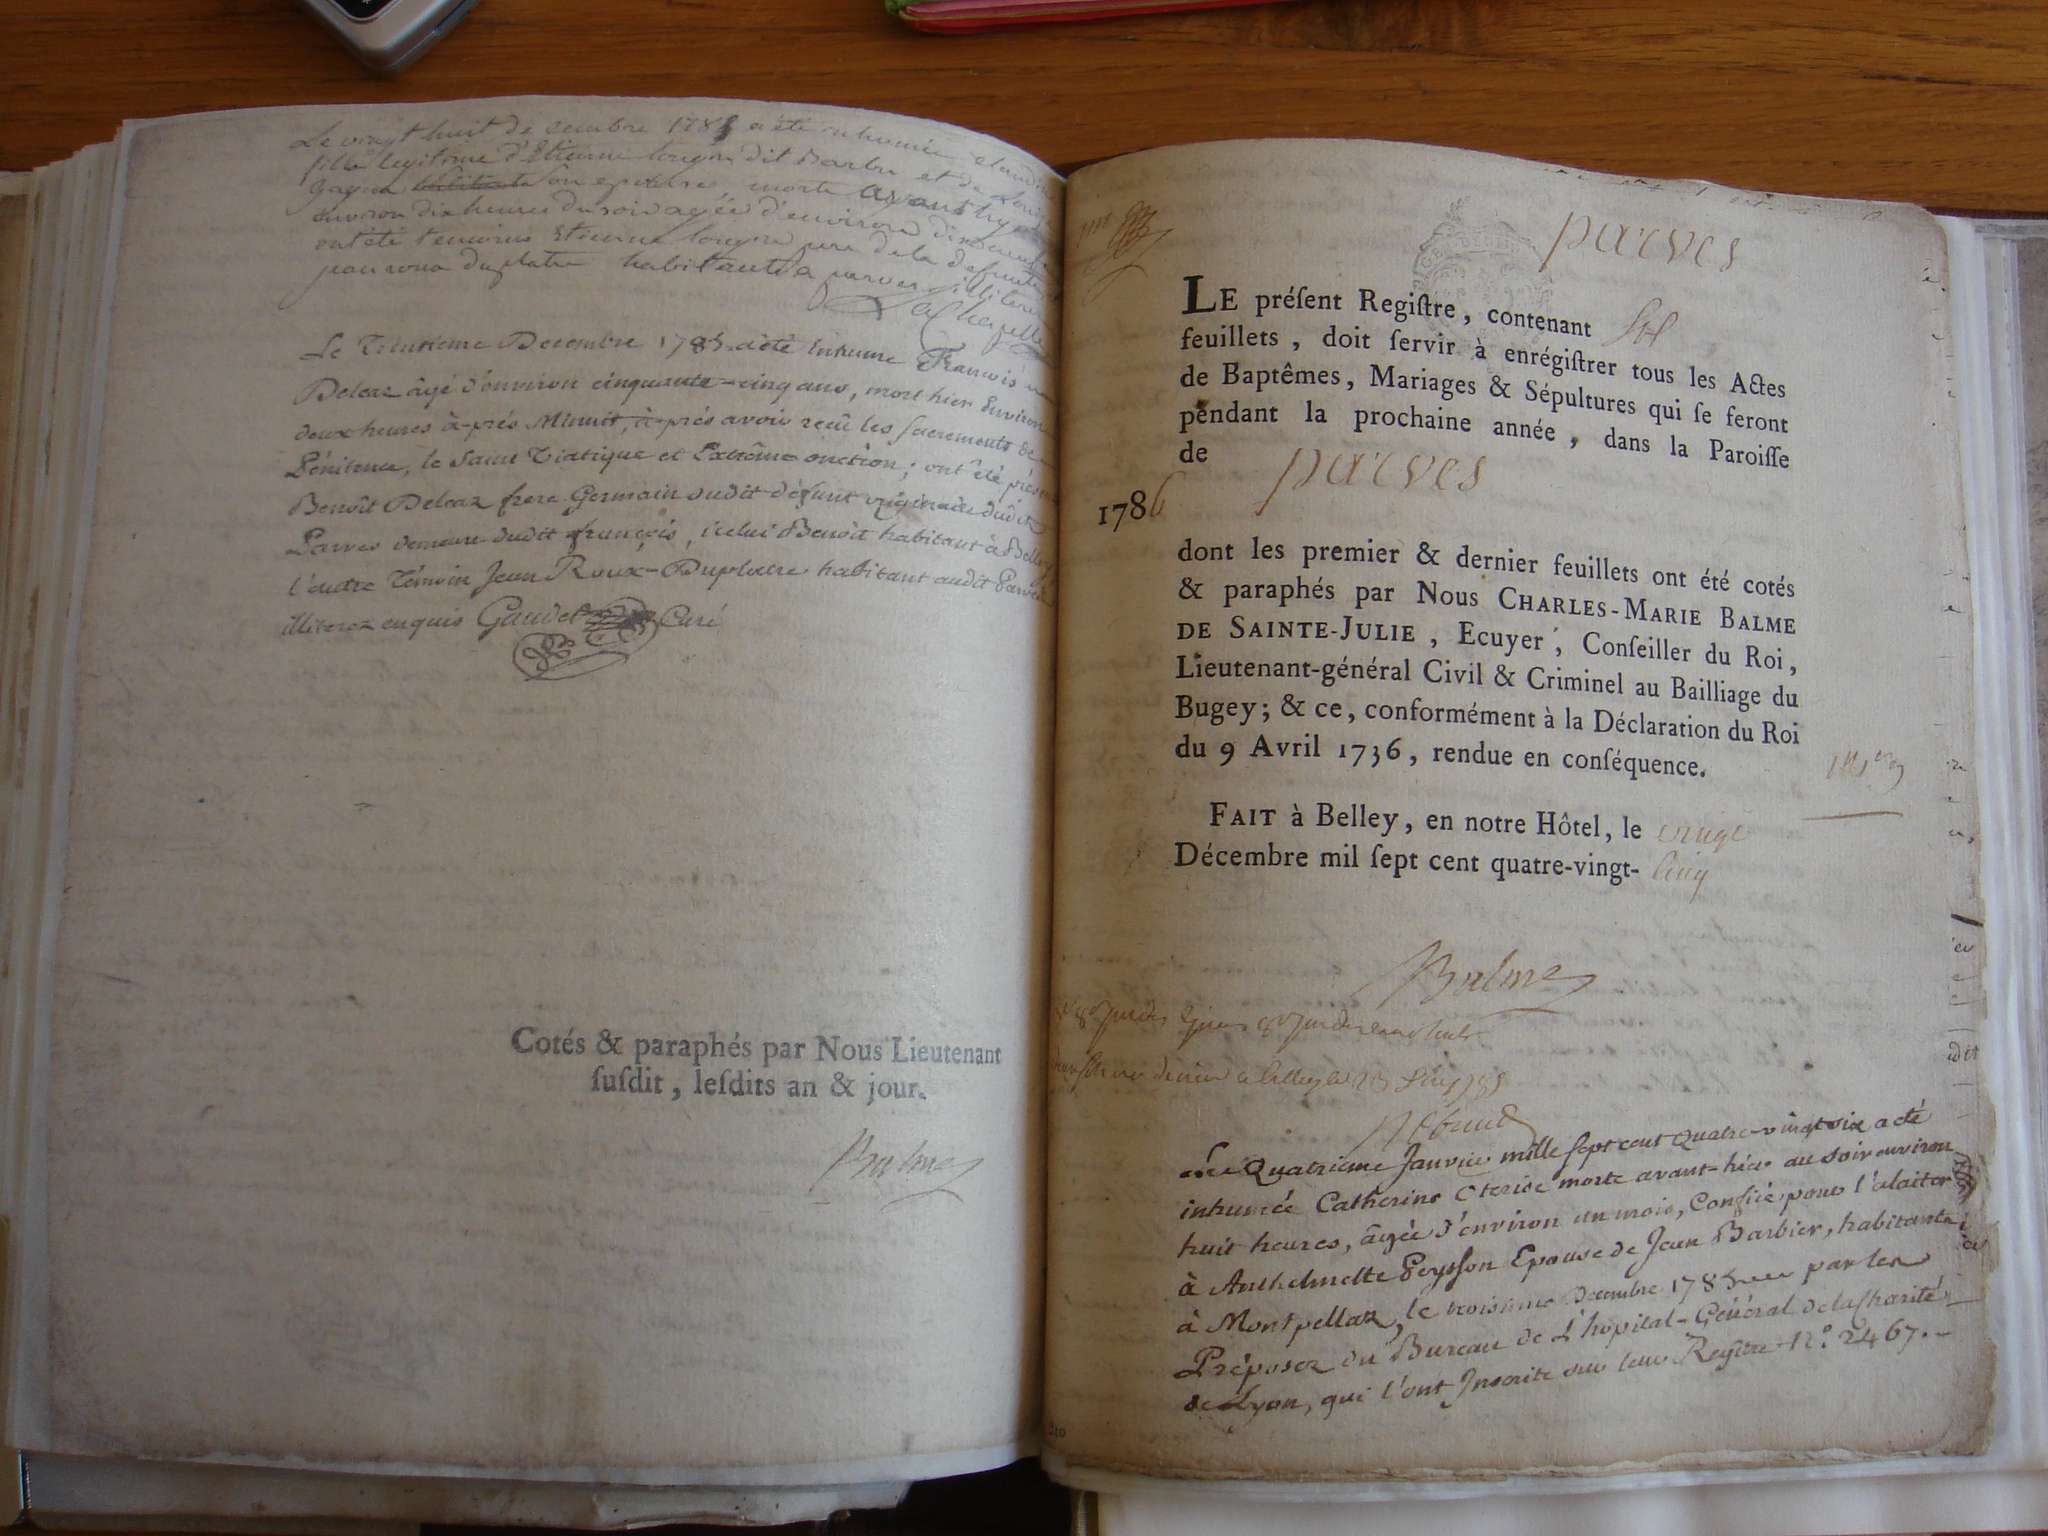 Le vingt huit decembre 1785 a été inhumée claudine
fille legitime d'Etienne dit Barbu et de Louise
son epouse, morte avant hyer
environ dix heures du soir agée d'environ
ont été temoins Etienne pere de la defunte
jean roux duplatre habitants a parves illiteres
Lachapelle
Le Trentieme Decembre 1785 a été Inhumé François
Deleaz âgé d'environ cinquante-cinq ans, mort hier Environ
deux heures à-prés Minuit, à-prés avoir reçû les sacrements de
Pénitence, le saint Viatique et Extrême onction; ont été présents
Benoît Deleaz frere Germain dudit défunt originaire dudit
Parves demeure dudit françois, icelui Benoît habitant à Belley
l'autre Témoin Jean Roux-Duplatre habitant audit Parves
illiterez enquis Gaudet Curé
Cotés & paraphés par Nous Lieutenant
susdit, lesdits an & jour.
Balme
parves
LE préſent Regiſtre, contenant six
feuillets, doit ſervir à enrégiſtrer tous les Actes
de Baptêmes, Mariages & Sépultures qui ſe feront
pendant la prochaine année, dans la Paroiſſe
de parves
1786
dont les premier & dernier feuillets ont été cotés
& paraphés par Nous CHARLES-MARIE BALME
DE SAINTE-JULIE, Ecuyer, Conſeiller du Roi,
Lieutenant-général Civil & Criminel au Bailliage du
Bugey; & ce, conformément à la Déclaration du Roi
du 9 Avril 1736, rendue en conſéquence.
FAIT à Belley, en notre Hôtel, le vingt
Décembre mil ſept cent quatre-vingt- cinq
Balme
Le Quatrieme Janvier mille sept cent Quatre-vingt six a été
inhumée Catherine Cterise morte avant-hier au soir environ
huit heures, âgée d'environ un mois, Confiée pour l'alaiter
à Anthelmette Peysson Epouse de Jean Barbier, habitante
à Montpellaz, le troisieme Decembre 1785 par les
Préposez du Bureau de L'hôpital-Général de la Charité
de Lyon, qui l'ont Inscrite sur leur Regître N.° 2467.